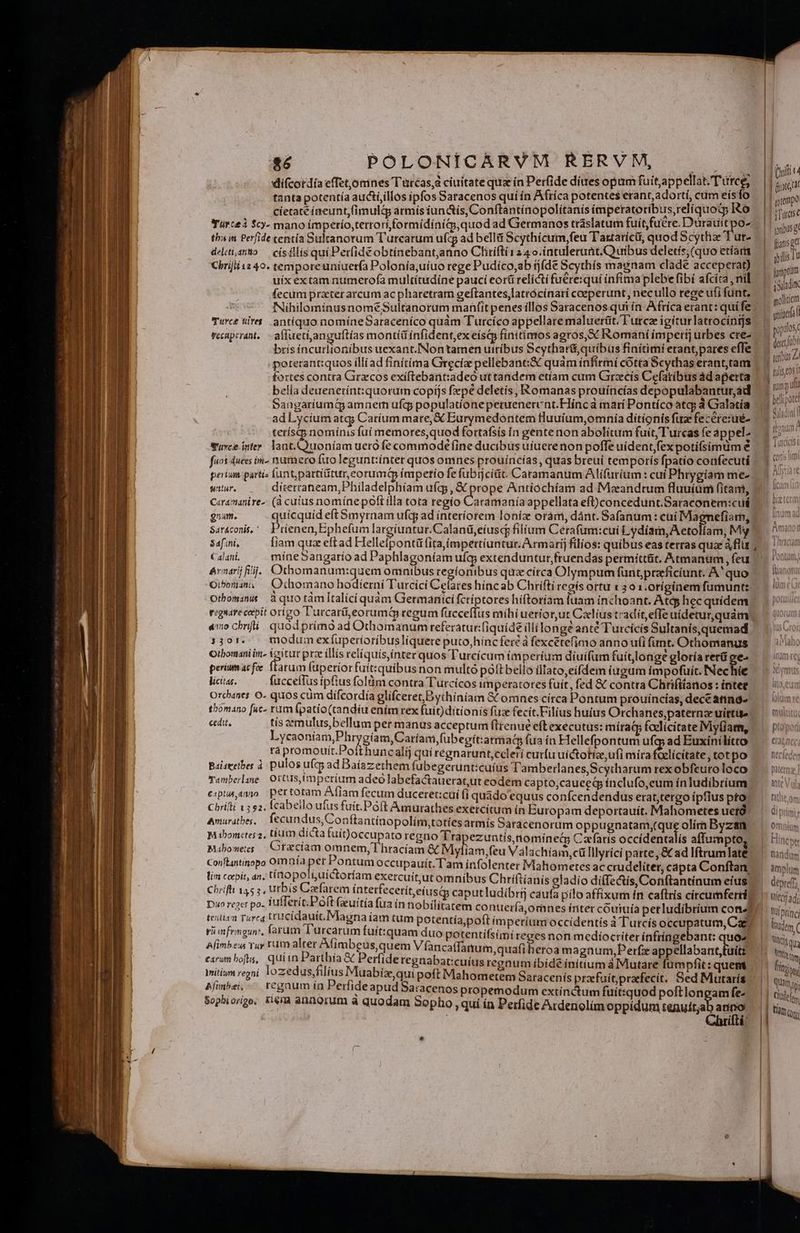 86 POLONICARVM RERVM,
discordia esset, omnes Turcas, à ciuitate quæ in Perside diues opum fuit, appellat. Turcę,
tanta potentia aucti, illos ipsos Saracenos qui in Africa potentes erant, adorti, cum eis so
cietatē ineunt, simulq́ armis iunctis, Constantinopolitanis imperatoribus, reliquoq́ Ro
Turceà Scy- mano imperio, terrori, formidiniq́, quod ad Germanos trāslatum fuit, fuêre. Durauit po-
this in Perside tentia Sultanorum Turcarum usq́ ad bellū Scythicum, seu Tartaricū, quod Scythæ Tur-
deleti, anno cis illis qui Persidē obtinebant, anno Christi 1240. intulerunt. Quibus deletis, (quo etiam
Christi 1240. tempore uniuersa Polonia, uiuo rege Pudico, ab ijsdē Scythis magnam cladē acceperat)
uix ex tam numerosa multitudine pauci eorū relicti fuêre: qui infima plebe sibi ascita, nil
secum præter arcum ac pharetram gestantes, latrocinari cœperunt, nec ullo rege usi sunt.
Nihilominus nomē Sultanorum mansit penes illos Saracenos qui in Africa erant: qui se
Turce uires antiquo nomine Saraceniço quàm Turcico appellare maluerūt. Turcæ igitur latrocinijs
recuperant. assueti, angustias montiū insident, ex eisq́ finitimos agros, & Romani imperij urbes cre-
bris incursionibus uexant. Non tamen uiribus Scytharū, quibus finitimi erant, pares esse
poterant: quos illi ad finitima Greciæ pellebant: & quàm infirmi cōtra Scythas erant, tam
fortes contra Græcos existebant: adeò ut tandem etiam cum Græcis Cesaribus ad aperta
bella deuenerint: quorum copijs sæpe deletis, Romanas prouincias depopulabantur, ad
Sangariumq́ amnem usq́ populatione peruenerunt. Hinc à mari Pontico atq́ à Galatia
ad Lyciam atq́ Carium mare, & Eurymedontem fluuium, omnia ditionis suæ fecêre: ue-
terisq́ nominis sui memores, quod fortassis in gente non abolitum fuit, Turcas se appel-
Turce inter lant. Quoniam uerò se commodè sine ducibus uiuere non posse uident, sex potissimùm è
suos duces im- numero suo legunt: inter quos omnes prouincias, quas breui temporis spatio consecuti
perium parti- sunt, partiūtur, eorumq́ imperio se subijciūt. Caramanum Alisurium: cui Phrygiam me-
untur. diterraneam, Philadelphiam usq́, & prope Antiochiam ad Mæandrum fluuium sitam,
Caramani re- (à cuius nomine post illa tota regio Caramania appellata est) concedunt. Saraconem: cui
gnum. quicquid est Smyrnam usq́ ad interiorem Ioniæ oram, dant. Sasanum: cui Magnesiam,
Saraconis. Prienen, Ephesum largiuntur. Calanū, eiusq́ filium Cerasum: cui Lydiam, Aetoliam, My
Sasani. siam quæ est ad Hellespontū sita, impertiuntur. Armarij filios: quibus eas terras quæ à flu
Calani. mine Sangario ad Paphlagoniam usq́ extenduntur, fruendas permittūt. Atmanum, seu
Armarij filij. Othomanum: quem omnibus regionibus quæ circa Olympum sunt, præficiunt. A' quo
Othomani. Othomano hodierni Turcici Cesares hinc ab Christi regis ortu 1301. originem sumunt:
Othomanus à quo tàm Italici quàm Germanici scriptores historiam suam inchoant. Atq́ hec quidem
regnare cœpit origo Turcarū, eorumq́ regum successus mihi uerior, ut Cælius tradit, esse uidetur, quàm
anno christi quod primò ad Othomanum referatur: siquidē illi longè antè Turcicis Sultanis, quemad
1301. modum ex superioribus liquere puto, hinc ferè à sexcētesimo anno usi sunt. Othomanus
Othomani im- igitur præ illis reliquis, inter quos Turcicum imperium diuisum fuit, longè gloria rerū ge-
perium ac fœ starum superior fuit: quibus non multò pòst bello illato, eisdem iugum imposuit. Nec hic
licitas. successus ipsius solùm contra Turcicos imperatores fuit, sed & contra Christianos: inter
Orchanes O- quos cùm discordia glisceret, Bythiniam & omnes circa Pontum prouincias, decē anno-
thomano suc- rum spatio (tandiu enim rex fuit) ditionis suæ fecit. Filius huius Orchanes, paternæ uirtu-
cedit. tis æmulus, bellum per manus acceptum strenuè est executus: miraq́ fœlicitate Mysiam,
Lycaoniam, Phrygiam, Cariam, subegit: armaq́ sua in Hellespontum usq́ ad Euxini litto
ra promouit. Post hunc alij qui regnarunt, celeri cursu uictoriæ, usi mira fœlicitate, tot po
Baiazethes à pulos usq́ ad Baiazethem subegerunt: cuius Tamberlanes, Scytharum rex obscuro loco
Tamberlane ortus, imperium adeò labefactauerat, ut eodem capto, caueęq́ incluso, eum in ludibrium
captus, anno per totam Asiam secum duceret: cui si quādo equus conscendendus erat, tergo ipsius pro
Christi 1392. scabello usus fuit. Pòst Amurathes exercitum in Europam deportauit. Mahometes uerò
Amurathes. secundus, Constantinopolim, toties armis Saracenorum oppugnatam, (quę olim Byzan
Mahometes 2. tium dicta fuit) occupato regno Trapezuntis, nomineq́ Cæsaris occidentalis assumpto,
Mahometes Græciam omnem, Thraciam & Mysiam, seu Valachiam, cū Illyrici parte, & ad Istrum latè
Constantinopo omnia per Pontum occupauit. Tam insolenter Mahometes ac crudeliter, capta Constan
lim cœpit, an. tinopoli, uictoriam exercuit, ut omnibus Christianis gladio dissectis, Constantinum eius
Christi 1453. urbis Cæsarem interfecerit, eiusq́ caput ludibrij causa pilo affixum in castris circumferri
Duo reges po- iusserit. Pòst sæuitia sua in nobilitatem conuersa, omnes inter cōuiuia per ludibrium con-
tentiam Turcą trucidauit. Magna iam tum potentia, post imperium occidentis à Turcis occupatum, Cæ
rū infringunt. sarum Turcarum fuit: quam duo potentissimi reges non mediocriter infringebant: quo-
Asimbeus Tur rum alter Asimbeus, quem V sancassanum, quasi heroa magnum, Persæ appellabant, fuit:
carum hostis. qui in Parthia & Perside regnabat: cuius regnum ibidē initium à Mutare sumpsit: quem
Initium regni Iozedus, filius Muabiæ, qui post Mahometem Saracenis præfuit, præfecit. Sed Mutaris
Asimbei. regnum in Perside apud Saracenos propemodum extinctum fuit: quod post longam se-
Sophi origo. riem annorum à quodam Sopho, qui in Perside Ardenolim oppidum tenuit, ab anno
Christi